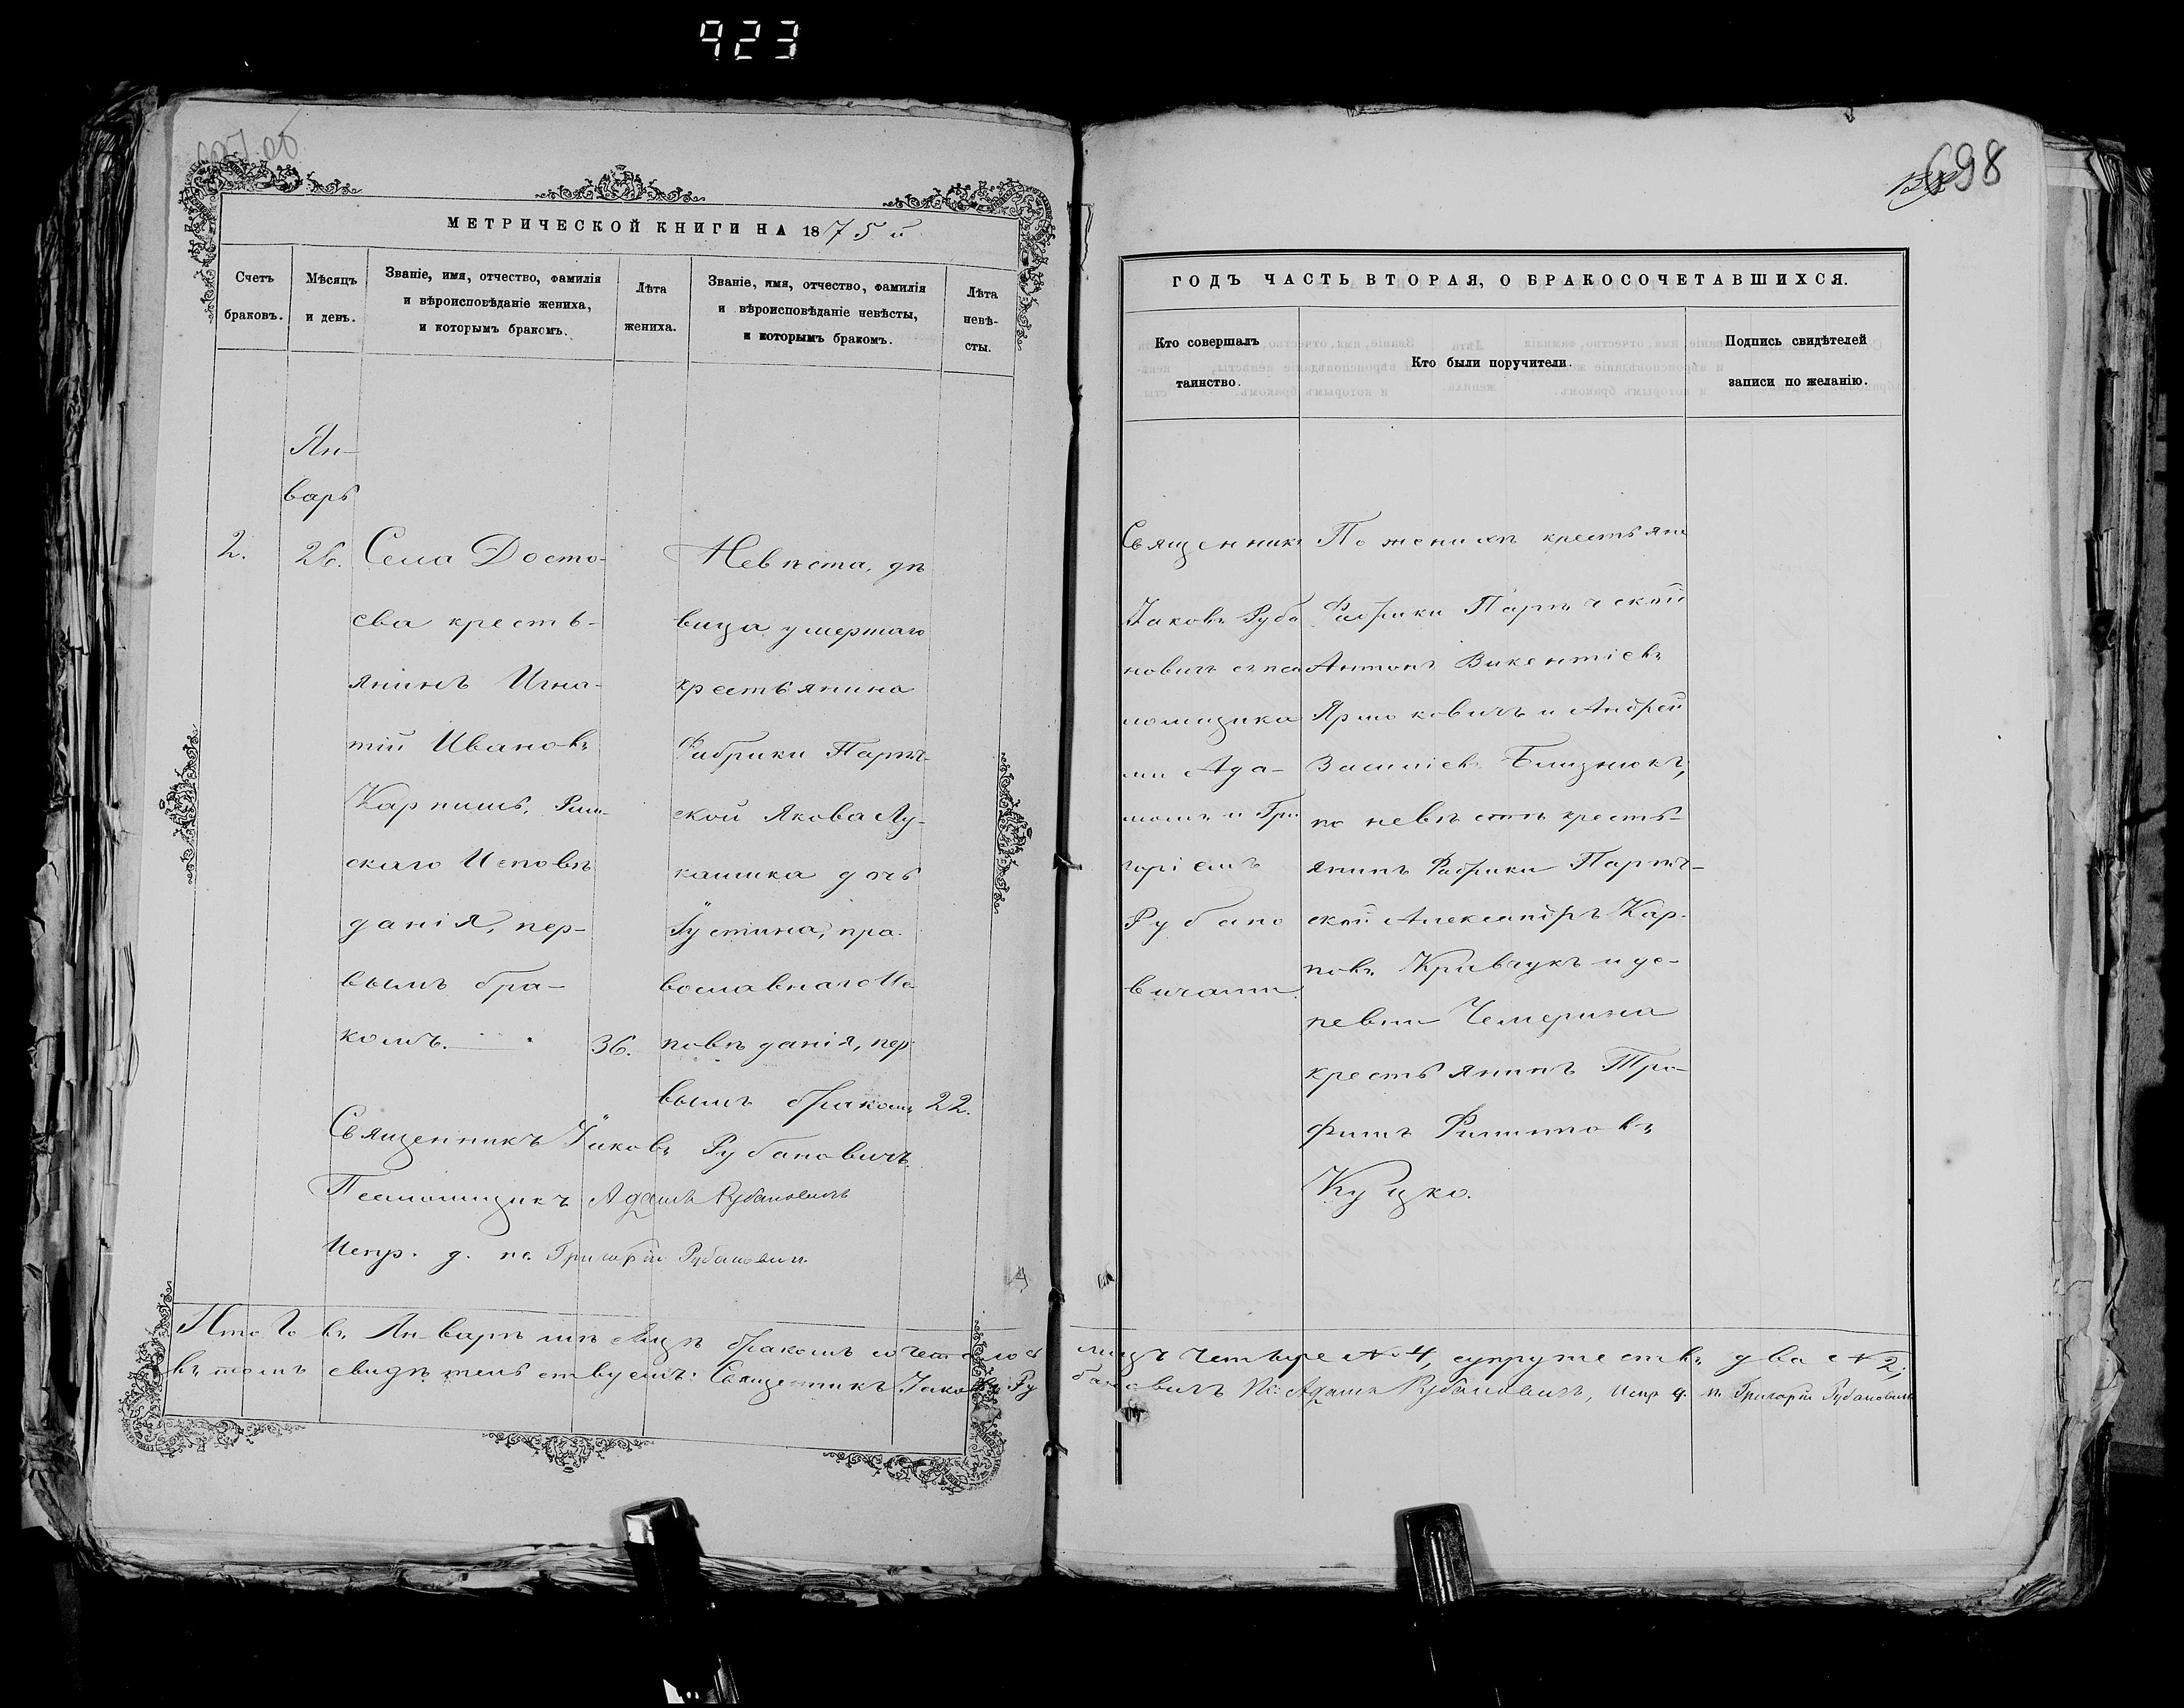 923
698
МЕТРИЧЕСКОЙ КНИГИ НА 1875й
Счетъ браковъ.
Мѣсяцъ и день.
Званіе, имя, отчество, фамилія
и вѣроисповѣданіе жениха,
и которымъ бракомъ.
Лѣта
жениха.
Званіе, имя, отчество, фамилія
и вѣроисповѣданіе невѣсты,
и которымъ бракомъ.
Лѣта
невѣ-
сты.
Ян-
варь
2.
26.
Села Досто-
ева кресть-
янинъ Игна-
тій Ивановъ
Карпишъ, Рим-
скаго Исповѣ
данія, пер-
вымъ бра-
комъ.
36.
Невѣста, дѣ
вица умершаго
крестьянина
Фабрики Парѣч-
ской Якова Лу-
кашика дочь
Іустина, пра-
вославнаго Ис
повѣданія, пер
вымъ бракомъ
22.
Священникъ Іаковъ Рубановичъ
Псаломщикъ Адамъ Рубановичъ
Испр. д. пс. Григорій Рубановичъ
ГОДЪ ЧАСТЬ ВТОРАЯ, О БРАКОСОЧЕТАВШИХСЯ.
Кто совершалъ
таинство.
Кто были поручители.
Подпись свидѣтелей
записи по желанію.
Священникъ
Іаковъ Руба
новичъ съ пса
ломщика
ми Ада-
момъ и Гри
горіемъ
Рубано
вичами.
По женихѣ крестьяне
Фабрики Парѣчской
Антонъ Викентіевъ
Ярмоковичъ и Андрей
Василіевъ Близнюкъ,
по невѣстѣ кресть-
янинъ Фабрики Парѣч-
ской Александръ Кар-
повъ Кривчукъ и де-
ревни Чемерина
крестьянинъ Тро-
фимъ Филиповъ
Куцко.
Итого въ Январѣ мѣсяцѣ бракомъ сочеталось лицъ четыре № 4, супружествъ два № 2;
въ томъ свидѣтельствуемъ: Священникъ Іаковъ Рубановичъ Пс: Адамъ Рубановичъ, Испр. д. пс. Григорій Рубановичъ